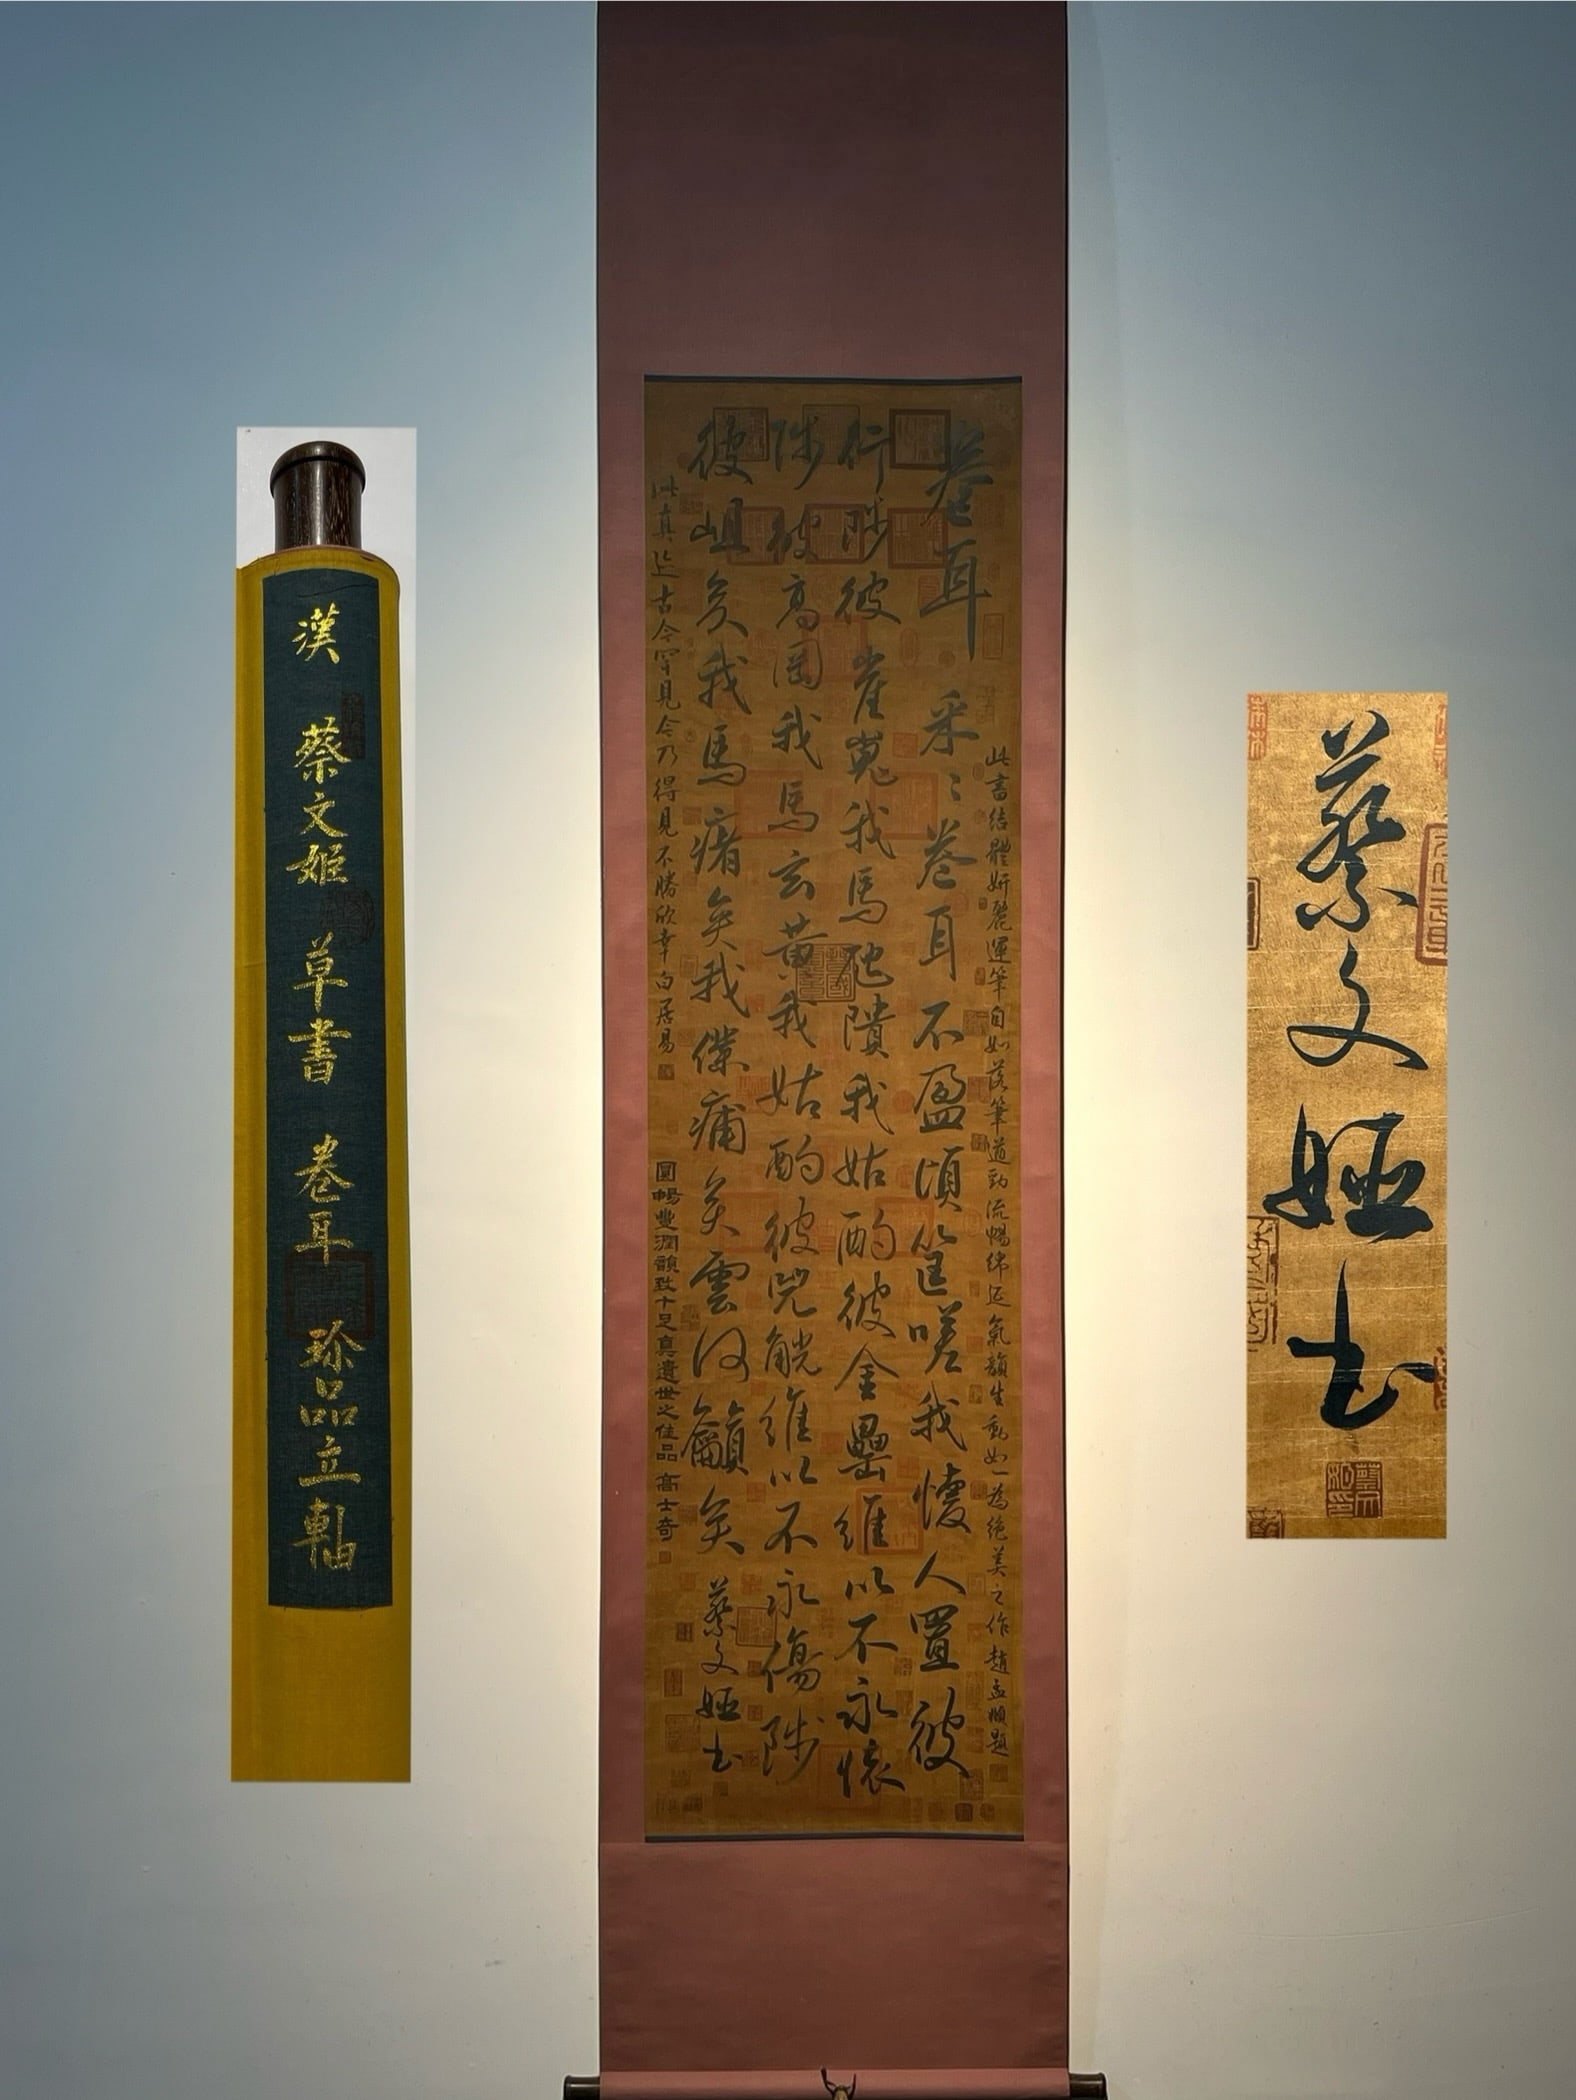 漢 蔡文姬 草書 卷耳 珍品立軸
此書結體妍麗運筆自如落筆遒勁流暢綿延氣韻生動如一為絕美之作趙孟頫題
卷耳 采〻卷耳不盈頃筐嗟我懷人置彼
行陟彼崔嵬我馬虺隤我姑酌彼金罍維以不永懷
陟彼高岡我馬玄黃我姑酌彼兕觥維以不永傷陟
彼岨矣我馬瘏矣我僕痡矣雲何籲矣 蔡文姬书
此真迹古今罕見今乃得見不勝欣幸白居易
圓暢豐潤韻致十足真遺世之佳品 高士奇
蔡文姬书